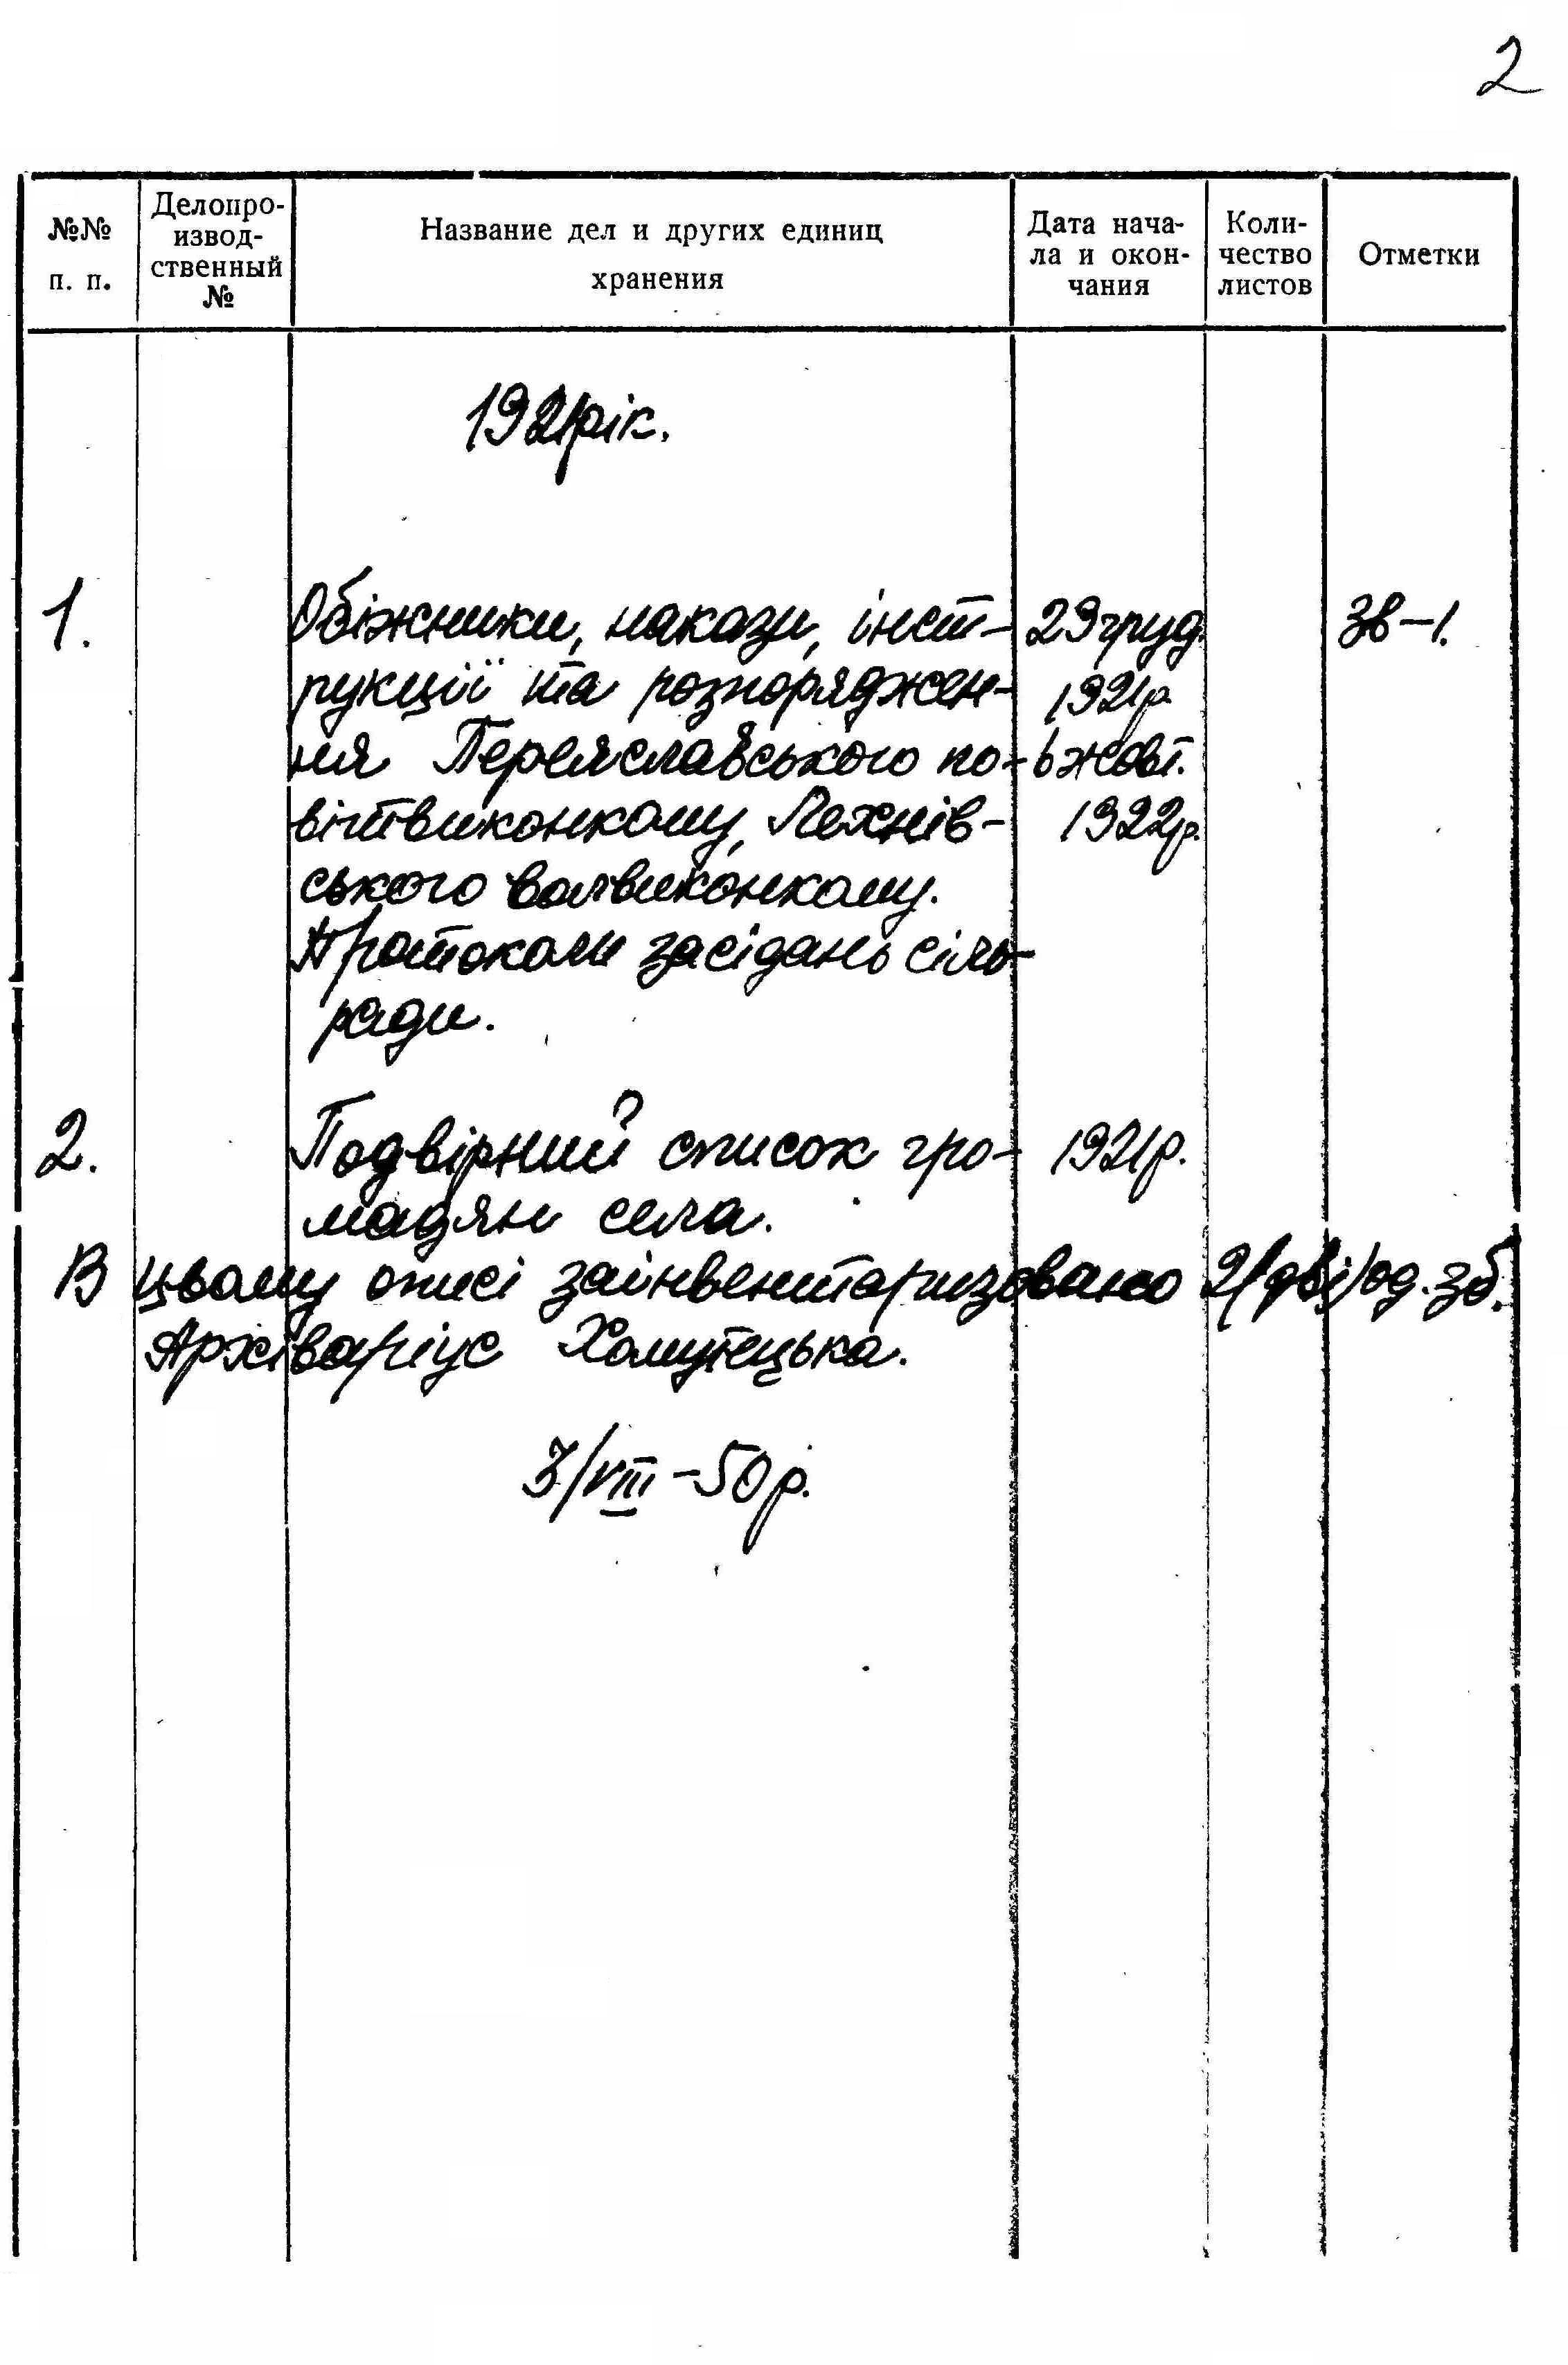 2
№№ п. п.
Делопро-
извод-
ственный
№
Название дел и других единиц
хранения
Дата нача-
ла и окон-
чания
Коли-
чество
листов
Отметки
1921рік.
1. Обіжники, накази, інст- 29 груд. Зв-1.
рукції та розпоряджен- 1921р.
ня Переяславського по- 6 жовт.
вітвиконкому, Лехнів- 1922р.
ського волвиконкому.
Протоколи засідань сіль-
ради.
2. Подвірний список гро- 1921р.
мадян села.
В цьому описі заінвентаризовано 2/дві/од. зб.
Архіваріус Хомутецька.
3/VIII-50р.